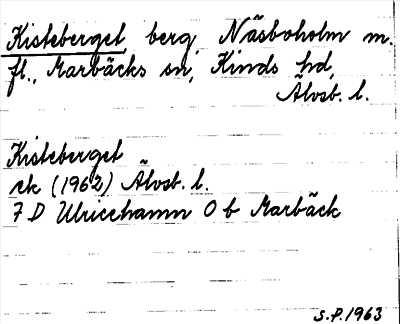 Kisteberget, berg, Näsboholm m.
fl., Marbäcks sn, Kinds hd,
Älvsb. l.
Kisteberget
ek (1962) Älvsb. l.
7 D Ulricehamn O b Marbäck
S.P. 1963